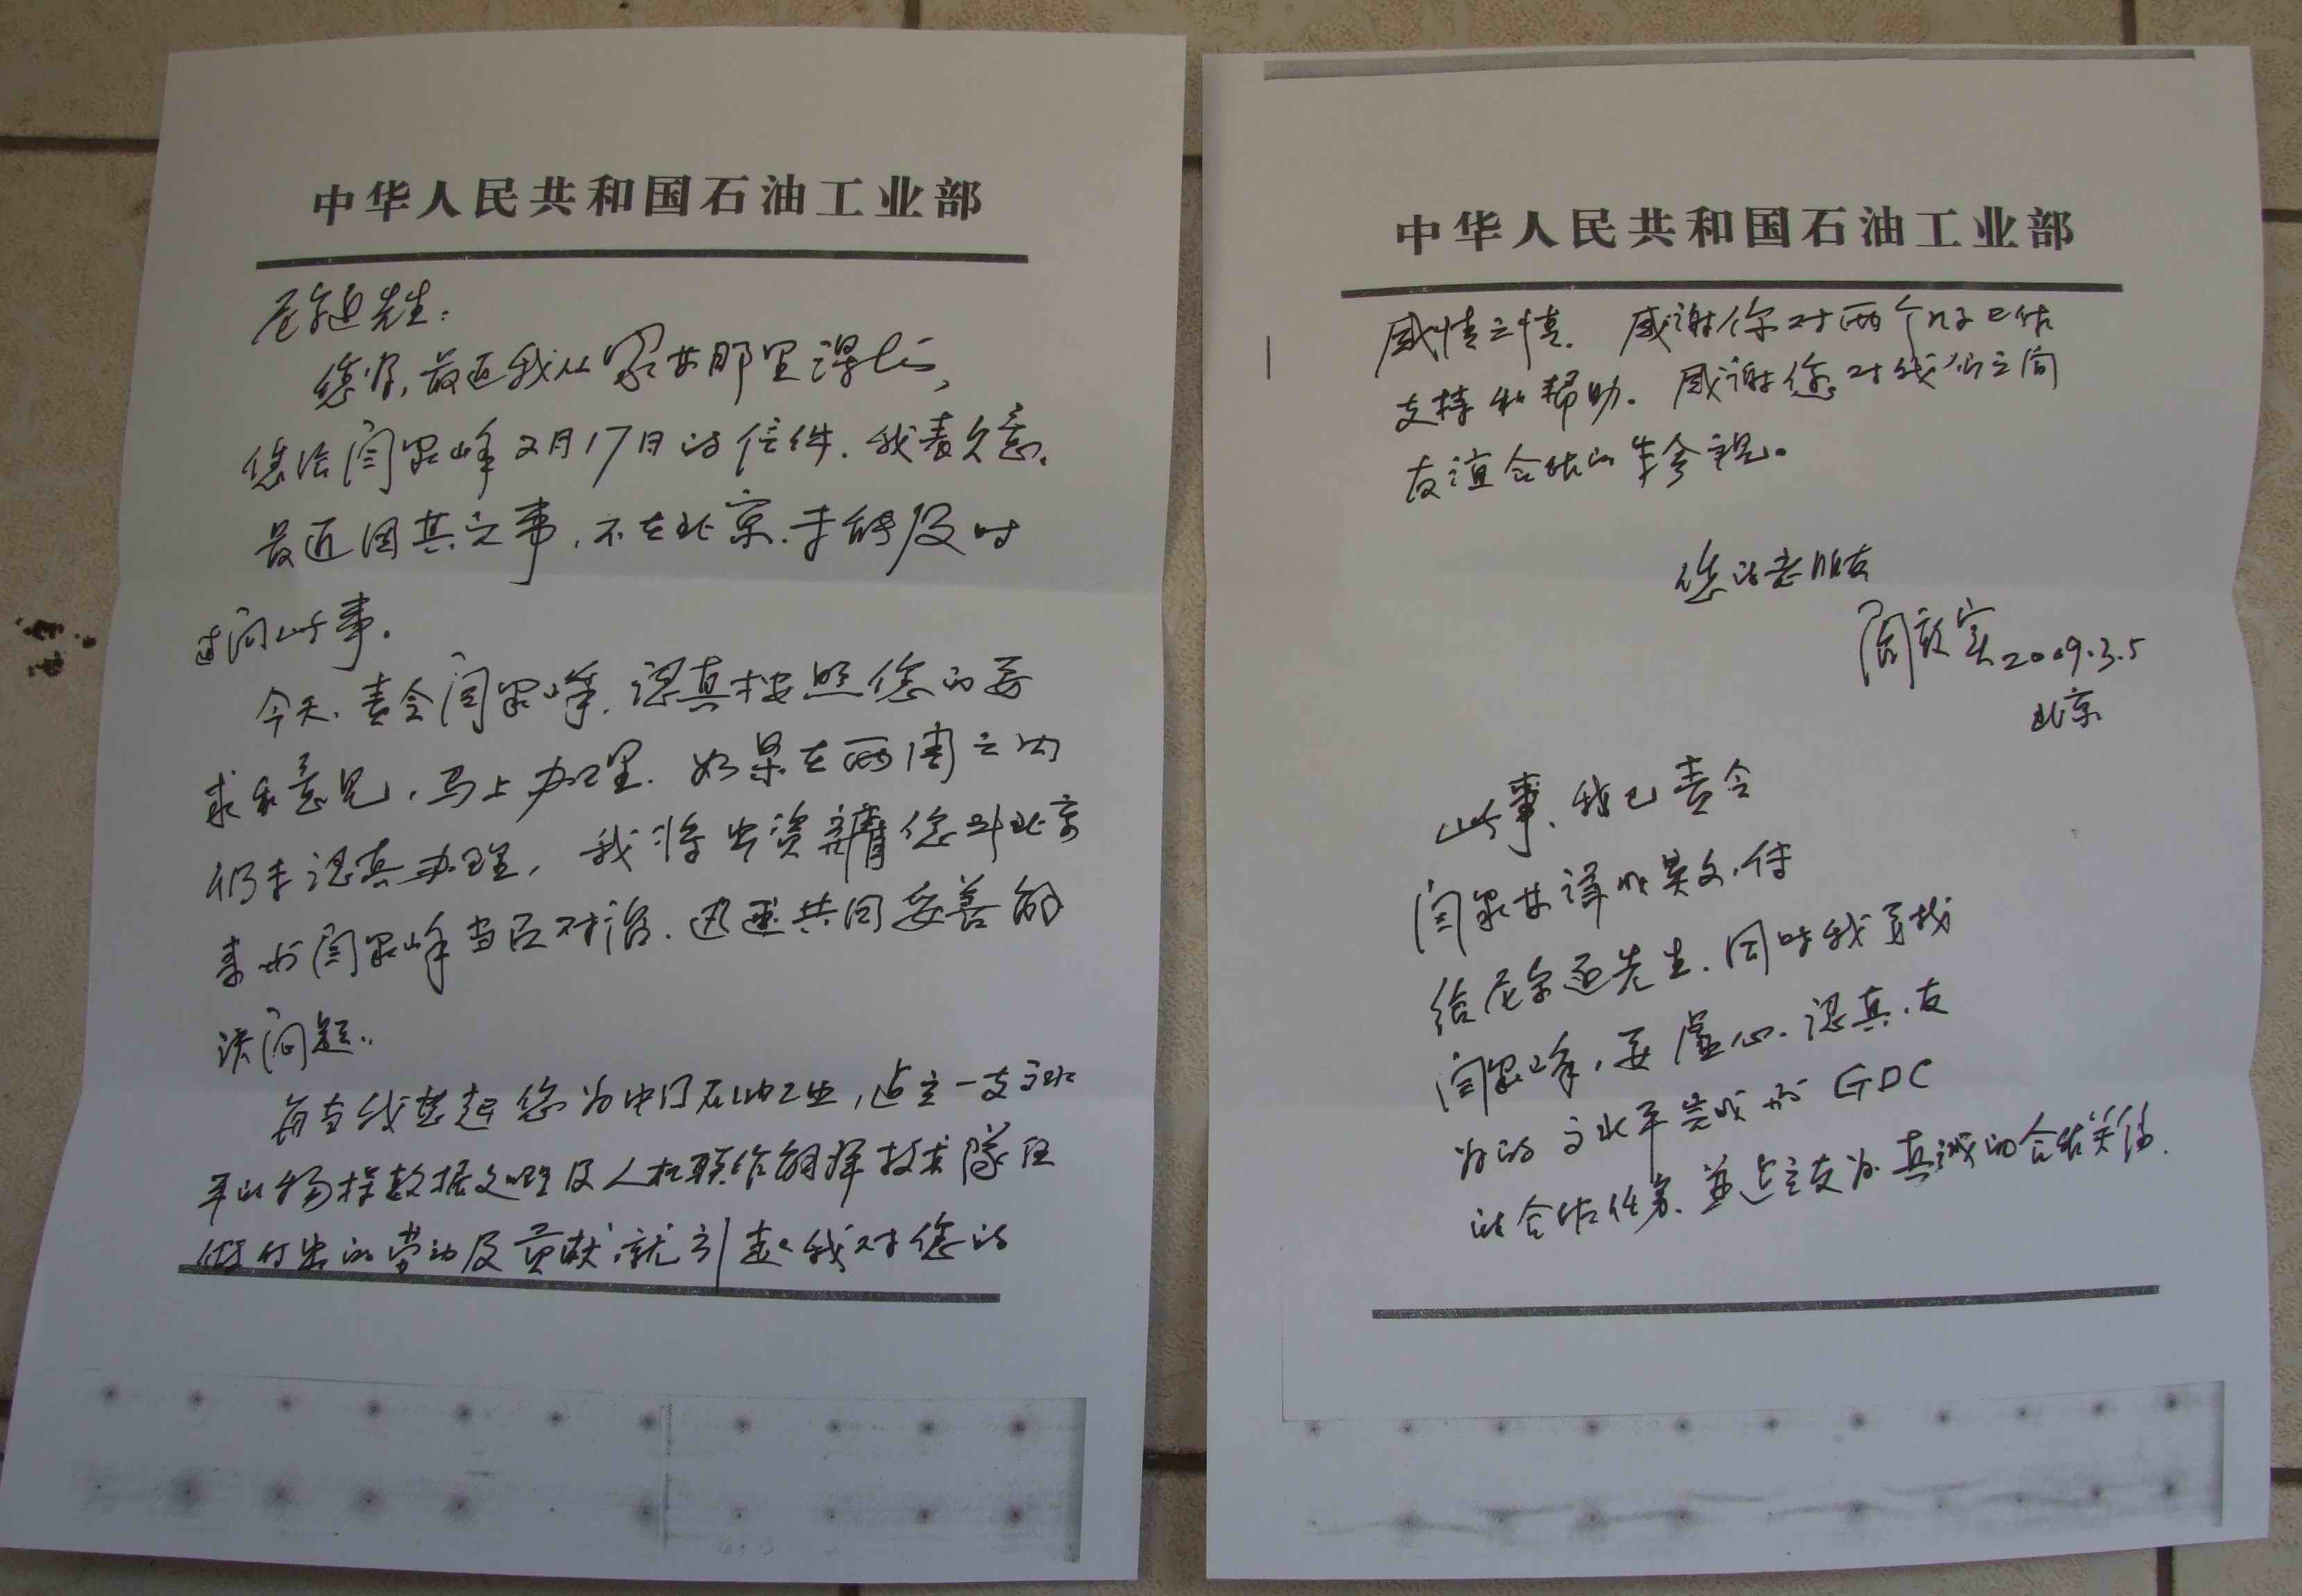 中华人民共和国石油工业部
尼尔迈先生:
您好,最近我从家英那里得知,
您给闫家峰2月17日的信件.我表欠意。
最近因其它事,不在北京.未能及时
过问此事.
今天,责令闫家峰.认真按照您的要
求和意见,马上办理.如果在两周之内
仍未认真办理,我将出资请您到北京
来与闫家峰当面对洽.迅速共同妥善解
决问题.
每当我想起您为中国石油工业,建立一支高水
平的物探数据处理及人机联作解释技术队伍
做付出的劳动及贡献,就引起我对您的
中华人民共和国石油工业部
感情之情.感谢你对两个儿子工作
支持和帮助.感谢您对我们之间
友谊合作的
您的老朋友
阎敦实2009.3.5
北京
此事,我已责令
闫家英译成英文,传
给尼尔迈先生.同时我寻找
闫家峰,要虚心.认真.友
好的高水平完成与GDC
的合作任务.并建立友好真诚的合作关系.